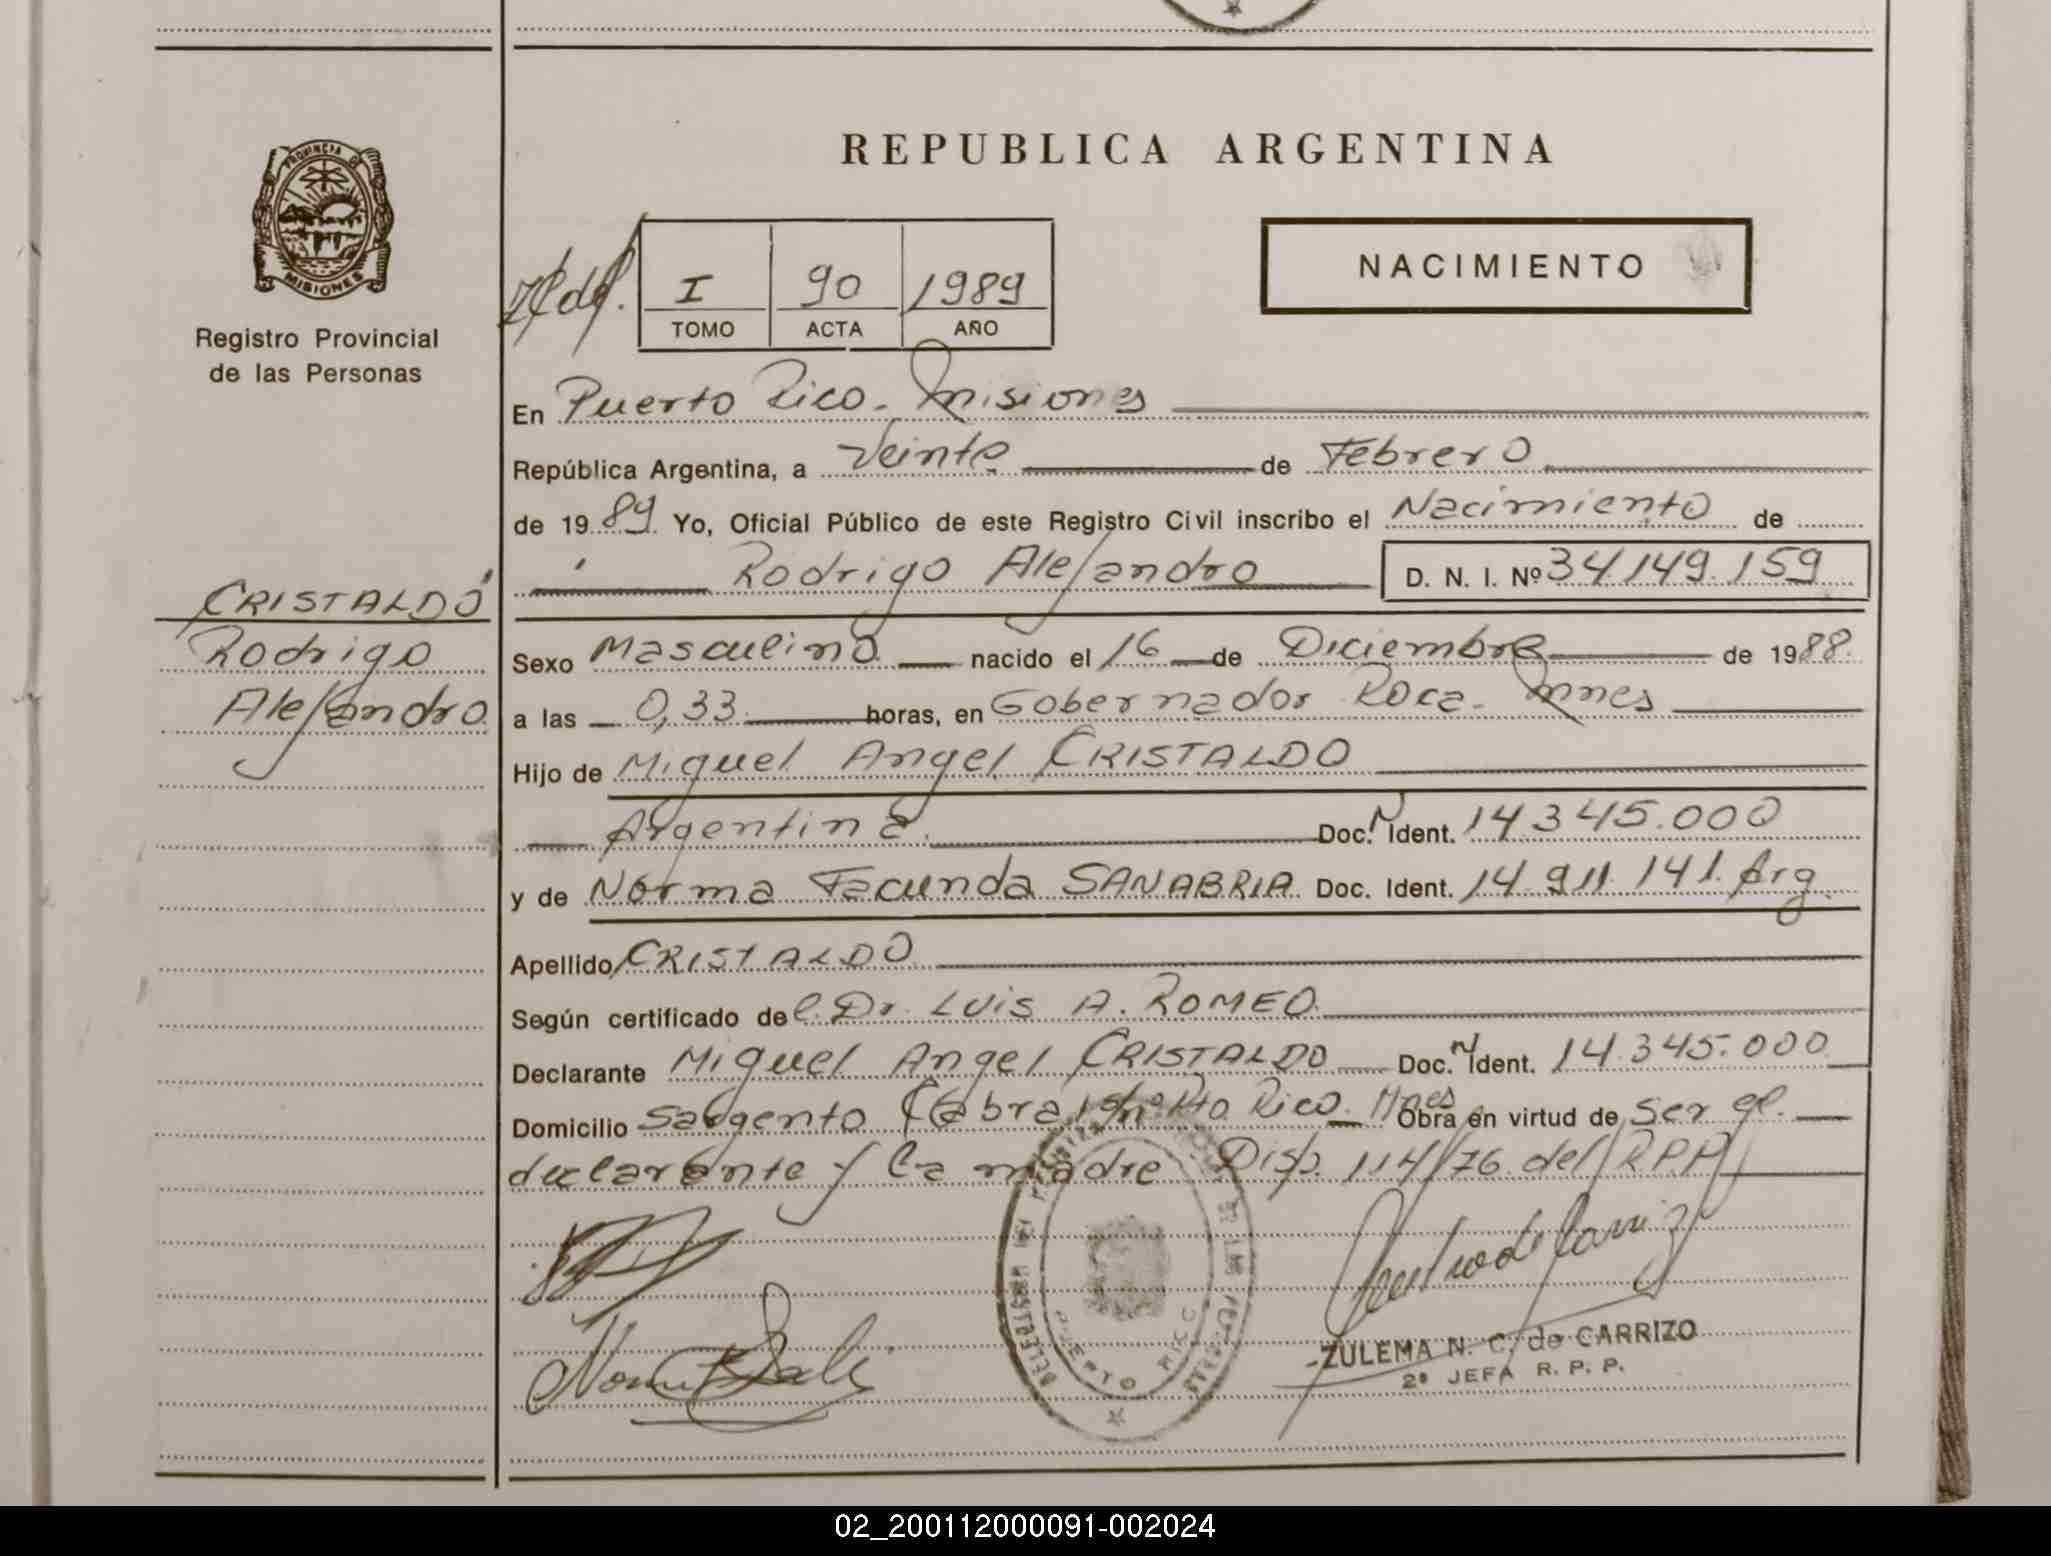 PROVINCIA DE
MISIONES
Registro Provincial
de las Personas
CRISTALDO
Rodrigo
Alejandro
REPUBLICA ARGENTINA
I 90 1989
TOMO ACTA AÑO
NACIMIENTO
En Puerto Rico - Misiones
República Argentina, a Veinte de Febrero
de 1989. Yo, Oficial Público de este Registro Civil inscribo el Nacimiento de
Rodrigo Alejandro D. N. I. Nº 34.149.159
Sexo Masculino nacido el 16 de Diciembre de 1988.
a las 0,33 horas, en Gobernador Roca - Mnes
Hijo de Miguel Angel CRISTALDO
Argentina. Doc. N Ident. 14.345.000
y de Norma Facunda SANABRIA Doc. Ident. 14.911.141. Arg.
Apellido CRISTALDO
Según certificado del Dr. LUIS A. ROMEO
Declarante Miguel Angel CRISTALDO Doc. N Ident. 14.345.000
Domicilio Sargento Cabral s/nº Pto Rico. Mnes Obra en virtud de ser el
declarante y la madre Disp. 114/76 del RPP
PUERTO RICO
ZULEMA N. C. de CARRIZO
2º JEFA R. P. P.
02_200112000091-002024